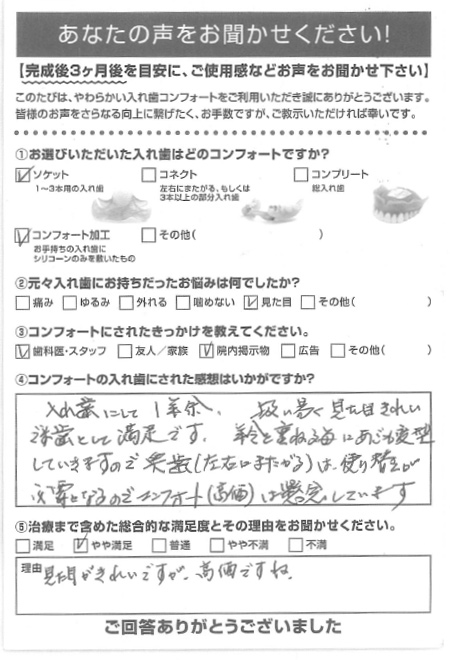 あなたの声をお聞かせください!
【完成後3ヶ月後を目安に、ご使用感などお声をお聞かせ下さい】
このたびは、やわらかい入れ歯コンフォートをご利用いただき誠にありがとうございます。
皆様のお声をさらなる向上に繋げたく、お手数ですが、ご教示いただければ幸いです。
①お選びいただいた入れ歯はどのコンフォートですか?
☑ソケット □コネクト □コンプリート
1〜3本用の入れ歯 左右にまたがる、もしくは 総入れ歯
3本以上の部分入れ歯
☑コンフォート加工 □その他( )
お手持ちの入れ歯に
シリコーンのみを敷いたもの
②元々入れ歯にお持ちだったお悩みは何でしたか?
□痛み □ゆるみ □外れる □噛めない ☑見た目 □その他( )
③コンフォートにされたきっかけを教えてください。
☑歯科医・スタッフ □友人/家族 ☑院内掲示物 □広告 □その他( )
④コンフォートの入れ歯にされた感想はいかがですか?
入れ歯にして1年余、扱い易く見た目きれい
満足です。年令と重ねる毎にあごも変型
していきますので (左右にまたがる)は、使り替えが
必要となるのでコンフォート(高価)は懸念しています
⑤治療まで含めた総合的な満足度とその理由をお聞かせください。
□満足 ☑やや満足 □普通 □やや不満 □不満
理由 見た目がきれいですが、高価ですね。
ご回答ありがとうございました